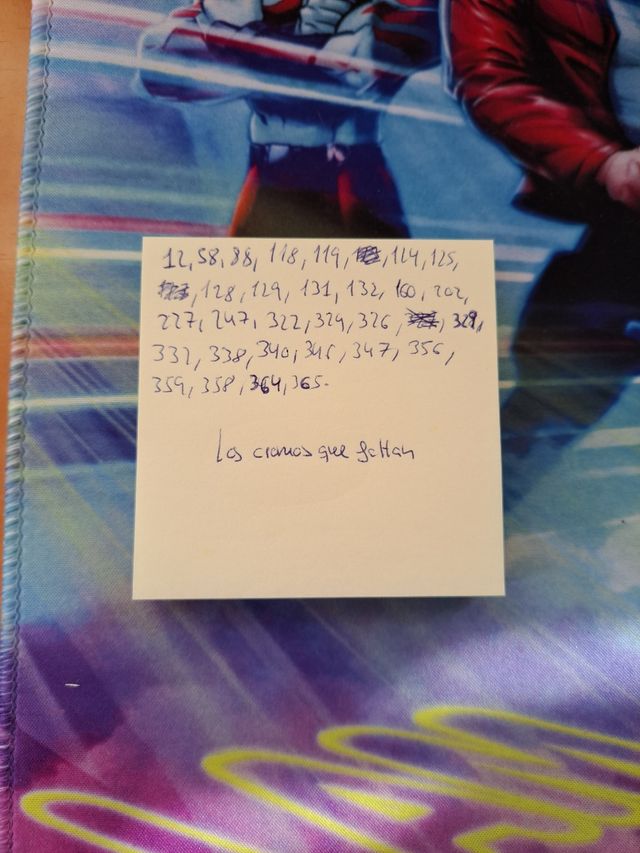 12, 58, 88, 118, 119, 124, 125,
128, 129, 131, 132, 160, 202,
227, 247, 322, 324, 326, 329,
332, 338, 340, 346, 347, 356,
359, 358, 364, 365.
Los cromos que faltan